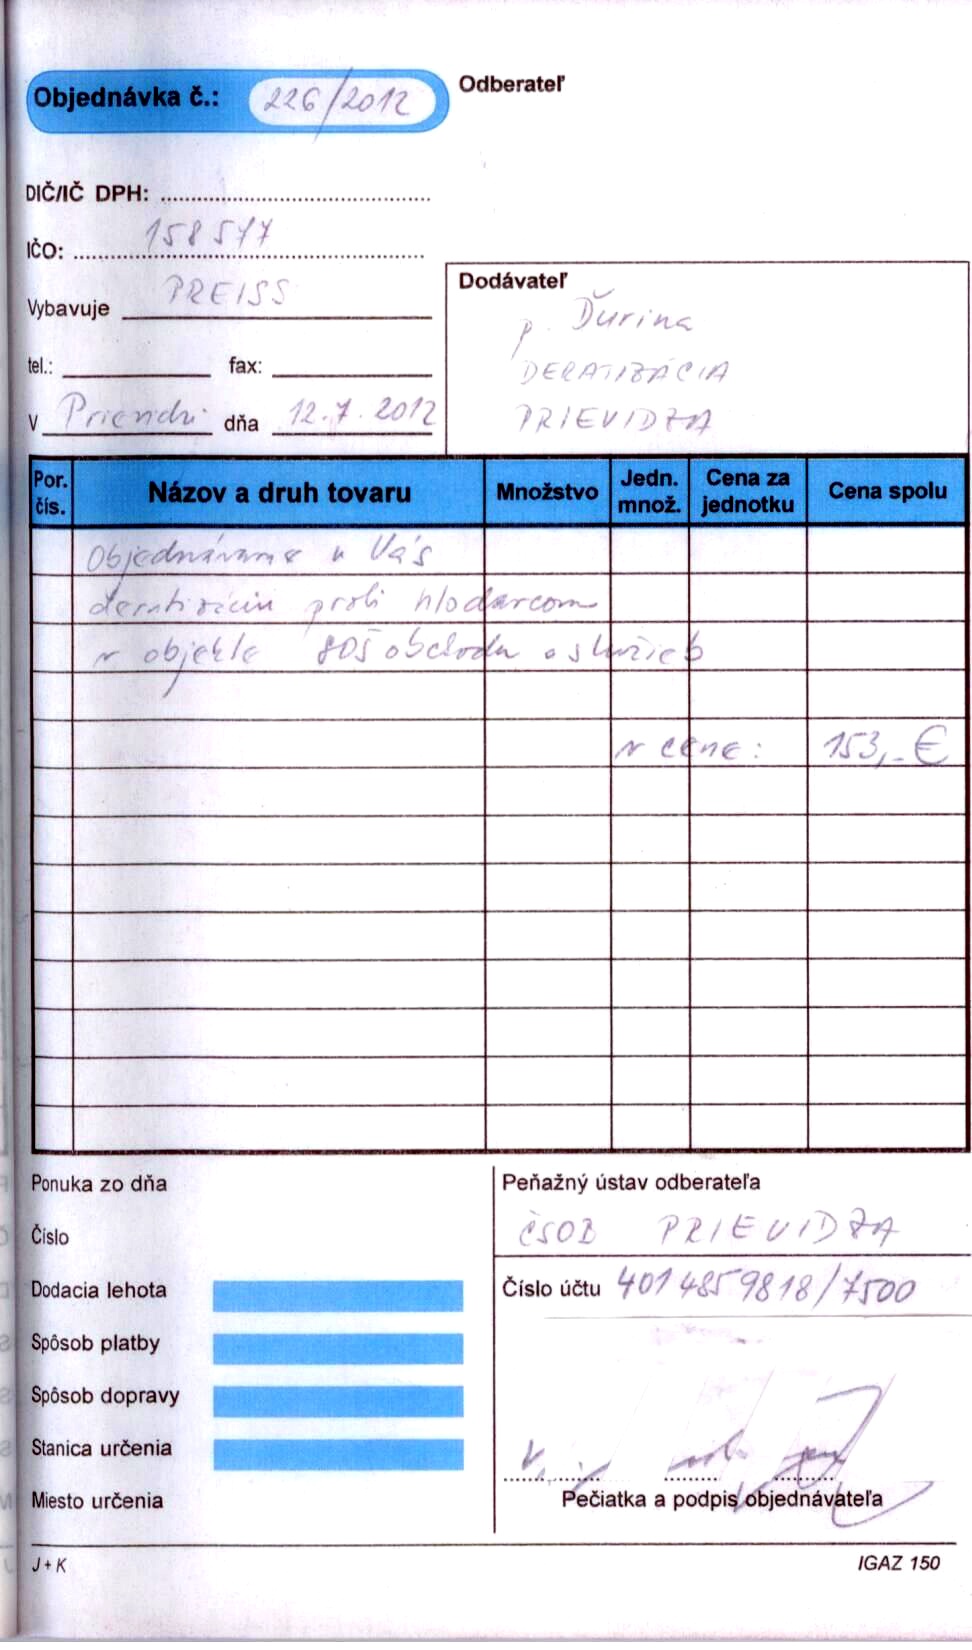 Objednávka č.: 226/2012
Odberateľ
DIČ/IČ DPH:
IČO: 158577
Vybavuje PREISS
tel.: fax:
V Prievidzi dňa 12.7.2012
Dodávateľ
p. Ďurina
DERATIZÁCIA
PRIEVIDZA
Por. čís. Názov a druh tovaru Množstvo Jedn. množ. Cena za jednotku Cena spolu
Objednávame u Vás
deratizáciu proti hlodavcom
v objekte SOŠ obchodu a služieb
v cene: 153,- €
Ponuka zo dňa
Číslo
Dodacia lehota
Spôsob platby
Spôsob dopravy
Stanica určenia
Miesto určenia
Peňažný ústav odberateľa
ČSOB PRIEVIDZA
Číslo účtu 4014859818/7500
Pečiatka a podpis objednávateľa
J + K
IGAZ 150